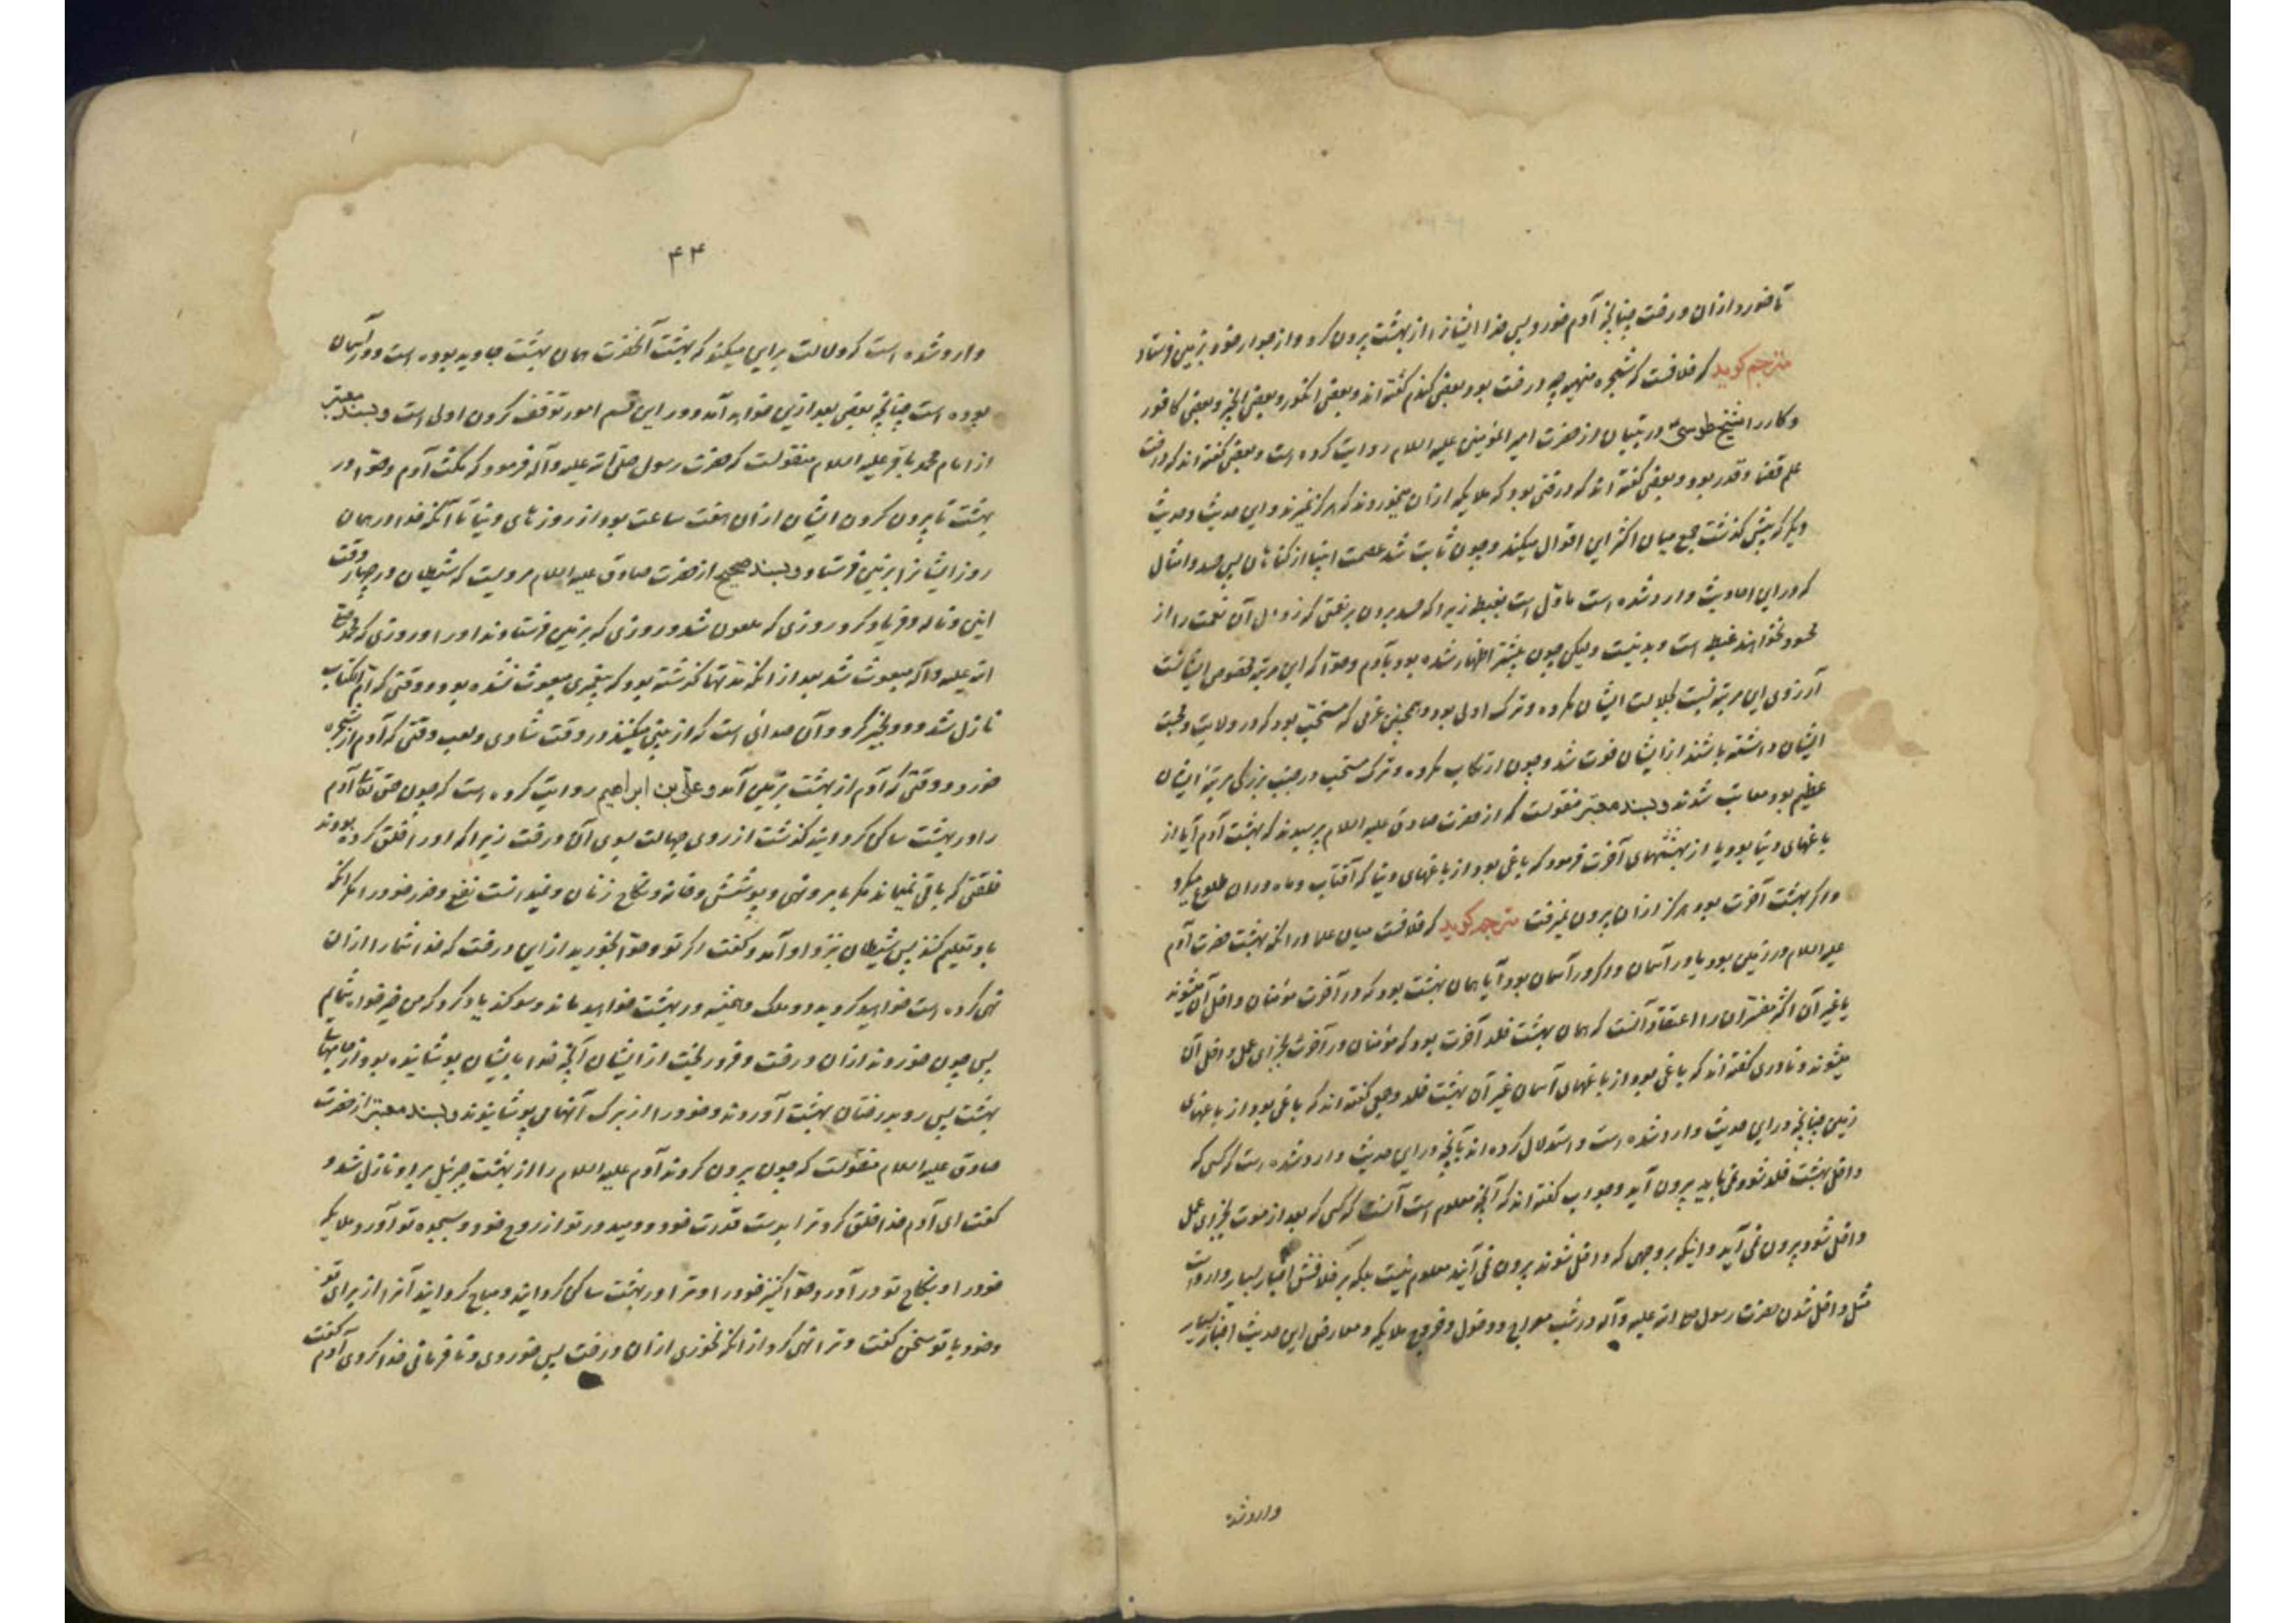 تا خورد از آن درخت چنانچه آدم خورد پس خدا ایشانرا از بهشت بیرون کرد و از جوار خود بزمین فرستاد
مترجم کوید که خلافست که شجره منهیه چه درخت بود بعضی کندم کفته اند و بعضی انکور و بعضی انجیر و بعضی کافور
و کار را شیخ طوسی در تبیان از حضرت امیر المؤمنین علیه السلام روایت کرده است و بعضی کفته اند که درخت
علم قضا و قدر بود و بعضی کفته اند که درختی بود که ملایکه از آن میخوردند که هرکز نمیرند و این حدیث و حدیث
دیکر که پیش کذشت جمع میان اکثر این اقوال میکند و چون ثابت شد عصمت انبیا از کناهان پس حسد و امثال
که در این احادیث وارد شده است مأول است بغبطه زیرا که حسد بردن بر نعمتی که زوال آن نعمت را از
محسود نخواهند غبطه است و بد نیست ولیکن چون بیشتر اظهار شده بود بآدم و حوا که این مرتبه مخصوص ایشانست
آرزوی این مرتبه نسبت بجلالت ایشان مکروه و ترک اولی بود و همچنین عزمی که مستحب بود که در ولایت و محبت
ایشان داشته باشند از ایشان فوت شد و چون ارتکاب مکروه و ترک مستحب در جنب بزرکی مرتبهٔ ایشان
عظیم بود معاتب شدند و بسند معتبر منقولست که از حضرت صادق علیه السلام پرسیدند که بهشت آدم آیا از
باغهای دنیا بود یا از بهشتهای آخرت فرمود که باغی بود از باغهای دنیا که آفتاب و ماه در آن طلوع میکرد
و اکر بهشت آخرت بود هرکز از آن بیرون نمیرفت مترجم کوید که خلافست میان علما در آنکه بهشت حضرت آدم
علیه السلام در زمین بود یا در آسمان و اکر در آسمان بود آیا همان بهشت بود که در آخرت مؤمنان داخل آن میشوند
یا غیر آن اکثر مفسران را اعتقاد آنست که همان بهشت خلد آخرت بود که مؤمنان در آخرت بجزای عمل داخل آن
میشوند و نادری کفته اند که باغی بود از باغهای آسمان غیر آن بهشت خلد و جمعی کفته اند که باغی بود از باغهای
زمین چنانچه در این حدیث وارد شده است و استدلال کرده اند بآنچه در این حدیث وارد شده است که کسی که
داخل بهشت خلد شود نمی باید بیرون آید و جواب کفته اند که آنچه معلوم است آنست که کسی که بعد از موت بجزای عمل
داخل شود بیرون نمی آید و اینکه بر وجهی که داخل شوند بیرون نمی آیند معلوم نیست بلکه بر خلافش اخبار بسیار وارد است
مثل داخل شدن حضرت رسول صلی الله علیه و آله در شب معراج و دخول و خروج ملایکه و معارض این حدیث اخبار بسیار
وارد شده
۴۴
وارد شده است که دلالت بر این میکند که بهشت آنحضرت همان بهشت جاوید بوده است و در آسمان
بوده است چنانچه بعضی بعد از این خواهد آمد و در این قسم امور توقف کردن اولی است و بسند معتبر
از امام محمد باقر علیه السلام منقولست که حضرت رسول صلی الله علیه و آله فرمود که مکث آدم و حوا در
بهشت تا بیرون کردن ایشان از آن هفت ساعت بود از روزهای دنیا تا آنکه خدا در همان
روز ایشانرا بزمین فرستاد و بسند صحیح از حضرت صادق علیه السلام مرویست که شیطان در چهار وقت
انین و ناله و فریاد کرد روزی که ملعون شد و روزی که بزمین فرستادند او را و روزی که محمد صلی
الله علیه و آله مبعوث شد بعد از آنکه مدتها کذشته بود که پیغمبری مبعوث نشده بود و وقتی که ام الکتاب
نازل شد و دو نخیر کرد و آن صدائی است که از بینی میکنند در وقت شادی و لعب وقتی که آدم از شجره
خورد و وقتی که آدم از بهشت بزمین آمد و علی بن ابراهیم روایت کرده است که چون حق تعالی آدم
را در بهشت ساکن کردانید کذشت از روی جهالت بسوی آن درخت زیرا که او را خلق کرده بودند
خلقتی که باقی نمیماند مکر بامر و نهی و پوشش و خانه و نکاح زنان و نمیدانست نفع و ضرر خود را مکر آنکه
باو تعلیم کنند پس شیطان بنزد او آمد و کفت اکر تو و حوا بخورید از این درخت که خدا شما را از آن
نهی کرده است خواهید کردید دو ملک و همیشه در بهشت خواهید ماند و سوکند یاد کرد که من خیرخواه شمایم
پس چون خوردند از آن درخت و فرو ریخت از ایشان آنچه خدا بایشان پوشانیده بود از جامهای
بهشت پس رو بدرختان بهشت آوردند و خود را از برک آنها می پوشانیدند و بسند معتبر از حضرت
صادق علیه السلام منقولست که چون بیرون کردند آدم علیه السلام را از بهشت جبرئیل بر او نازل شد و
کفت ای آدم خدا خلق کرد ترا بدست قدرت خود و دمید در تو از روح خود و بسجده تو آورد ملایکه
خود را و بنکاح تو در آورد حوا کنیز خود را و ترا در بهشت ساکن کردانید و مباح کردانید آنرا از برای تو
و خود با تو سخن کفت و ترا نهی کرد از آنکه نخوری از آن درخت پس خوردی و نافرمانی خدا کردی آدم کفت